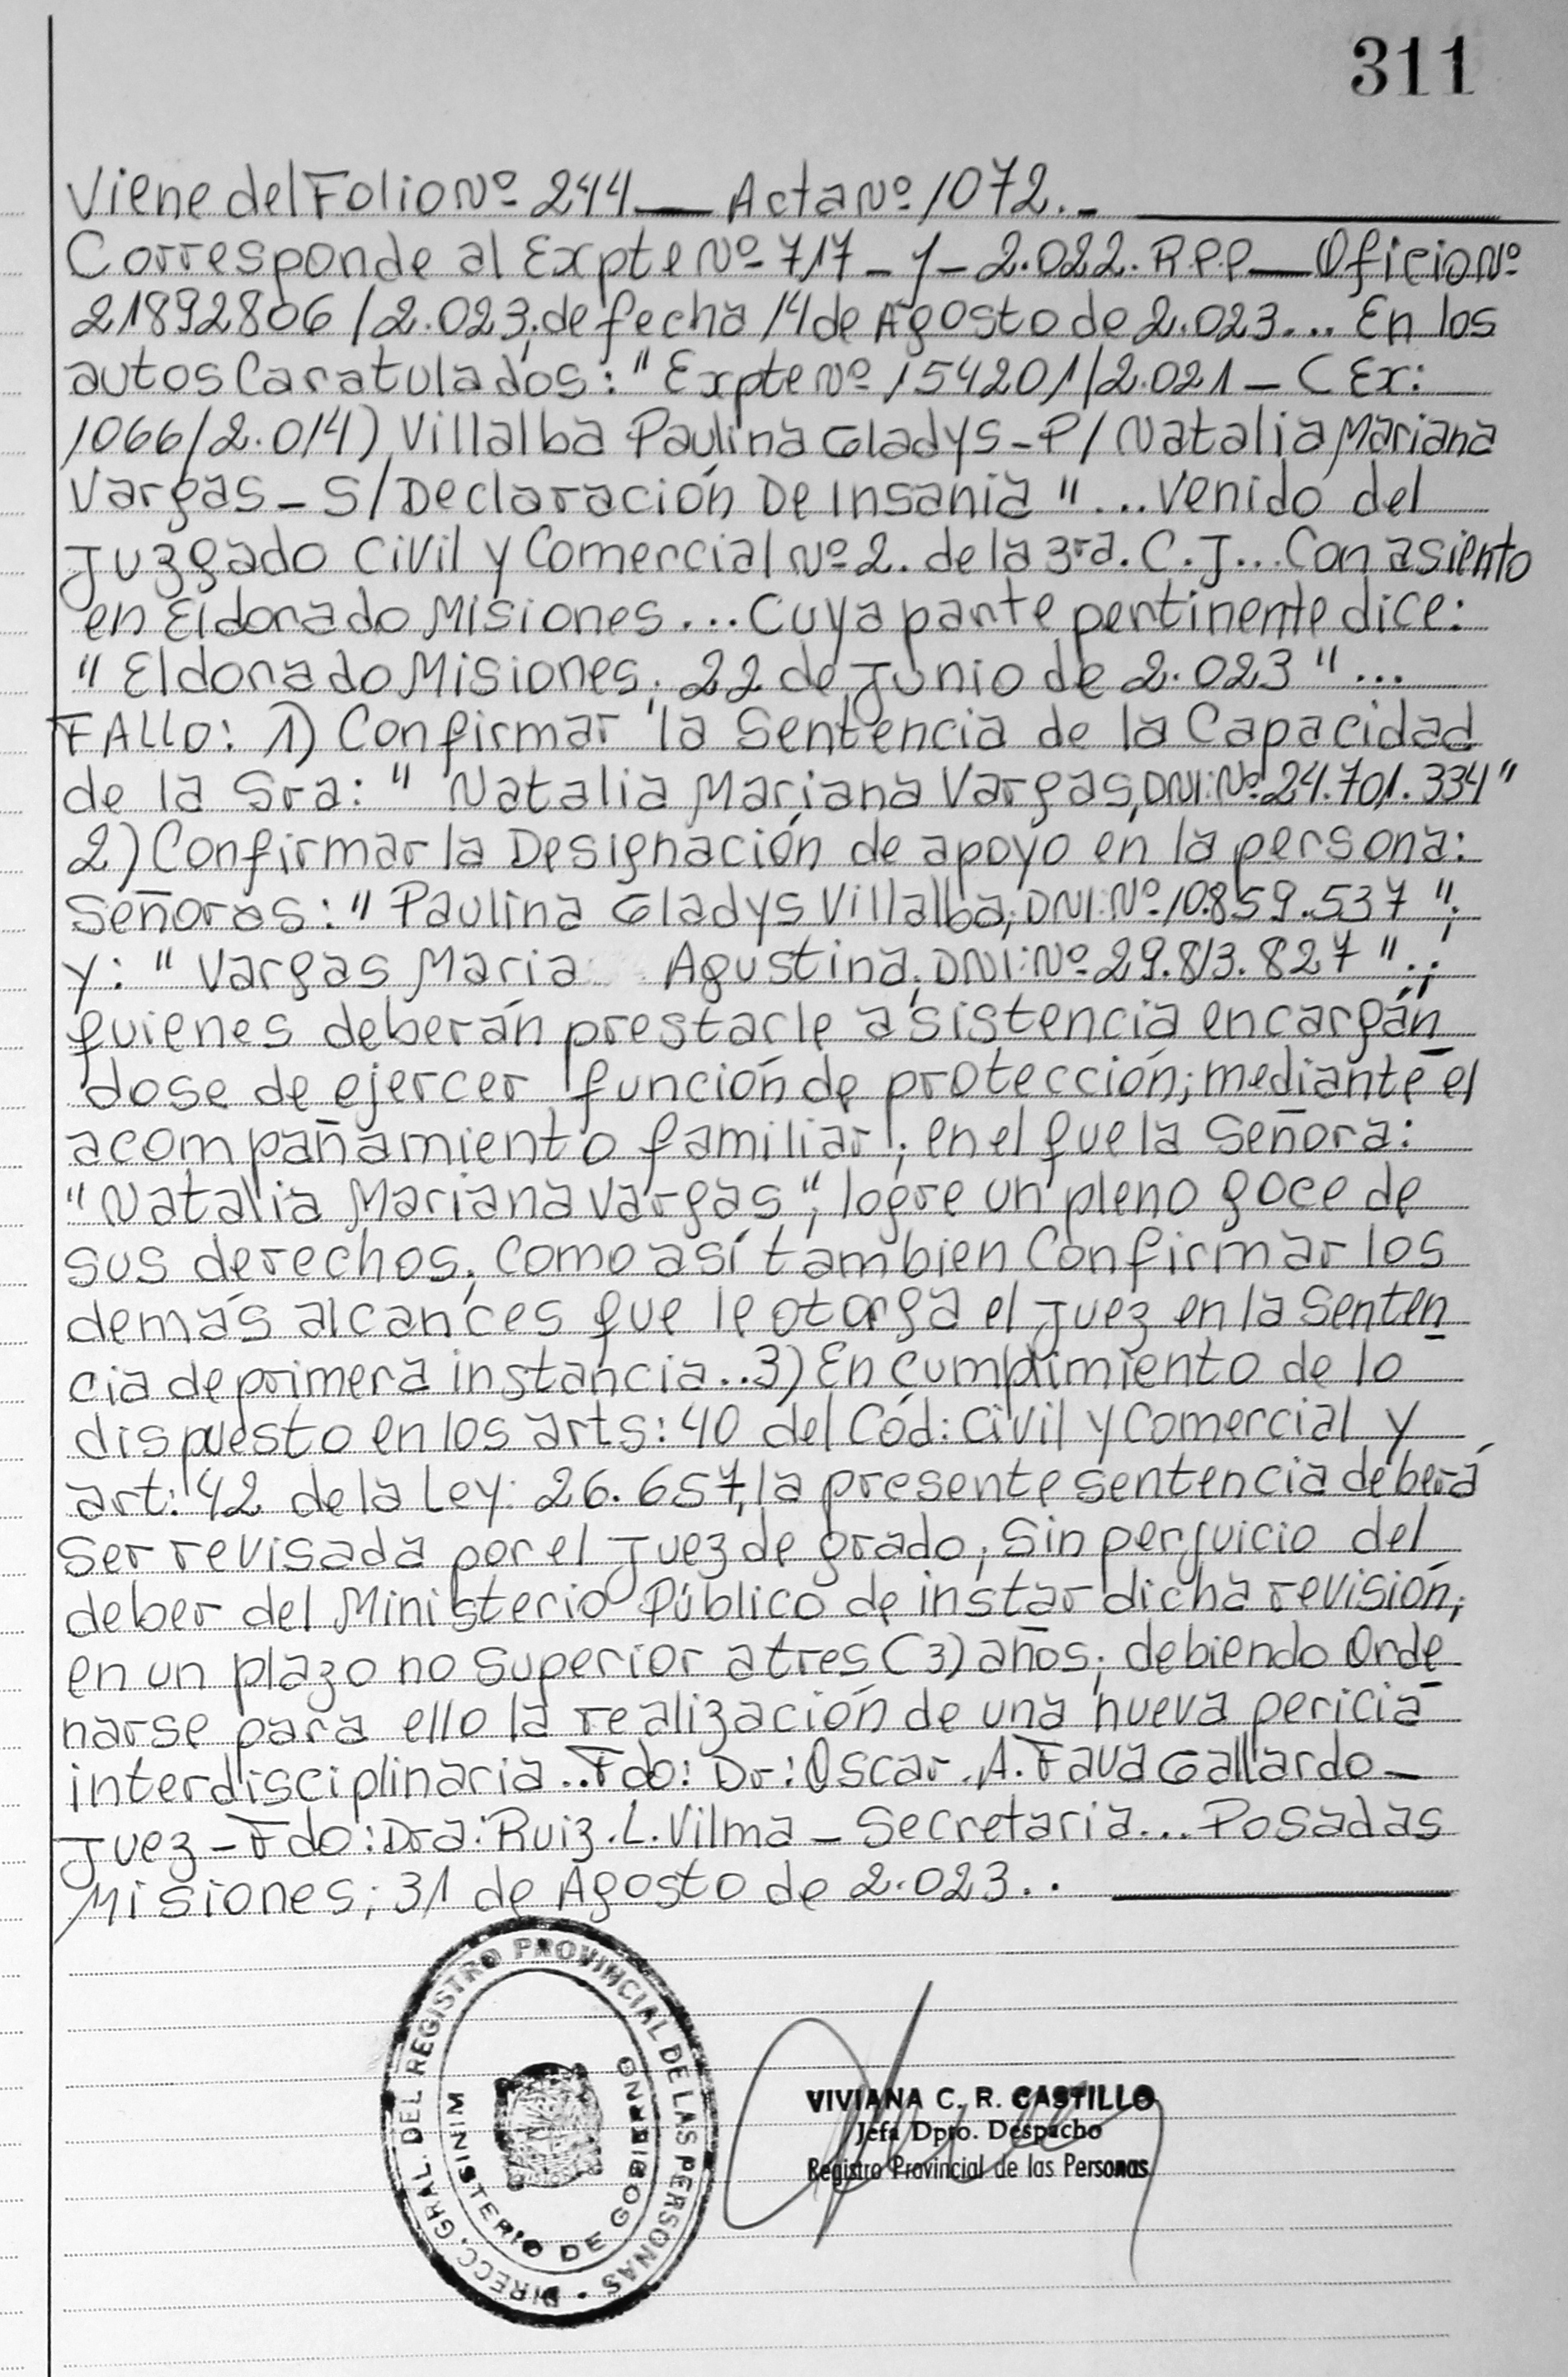 311
Viene del Folio Nº 244 — Acta Nº 1072.-
Corresponde al Expte Nº 717-Y-2.022. R.P.P — Oficio Nº
21892806/2.023; de fecha 14 de Agosto de 2.023... En los
autos Caratulados: "Expte Nº 154201/2.021 - (Ex:
1066/2.014) Villalba Paulina Gladys - P/ Natalia Mariana
Vargas - S/ Declaración De Insania"... venido del
Juzgado Civil y Comercial Nº 2. de la 3ra. C.J... Con asiento
en Eldorado Misiones... Cuya parte pertinente dice:
"Eldorado Misiones; 22 de Junio de 2.023"...
FALLO: 1) Confirmar la Sentencia de la Capacidad
de la Sra: "Natalia Mariana Vargas, DNI: Nº 24.701.334"
2) Confirmar la Designación de apoyo en la persona:
Señoras: "Paulina Gladys Villalba; DNI: Nº 10.859.537";
y: "Vargas Maria Agustina; DNI: Nº 29.813.827".;
quienes deberán prestarle asistencia encargán
dose de ejercer función de protección; mediante el
acompañamiento familiar; en el que la Señora:
"Natalia Mariana Vargas"; logre un pleno goce de
sus derechos; como así tambien Confirmar los
demás alcances que le otorga el Juez en la Senten
cia de primera instancia.. 3) En Cumplimiento de lo
dispuesto en los arts: 40 del Cód: Civil y Comercial y
art: 42 de la Ley: 26.657, la presente sentencia deberá
ser revisada por el Juez de grado; Sin perjuicio del
deber del Ministerio Público de instar dicha revisión;
en un plazo no superior a tres (3) años; debiendo Orde
narse para ello la realización de una nueva pericia
interdisciplinaria.. Fdo: Dr: Oscar. A. Fava Gallardo -
Juez - Fdo: Dra: Ruiz. L. Vilma - Secretaria... Posadas
Misiones; 31 de Agosto de 2.023..
DIRECC. GRAL. DEL REGISTRO PROVINCIAL DE LAS PERSONAS
MINISTERIO DE GOBIERNO
VIVIANA C. R. CASTILLO
Jefa Dpto. Despacho
Registro Provincial de las Personas